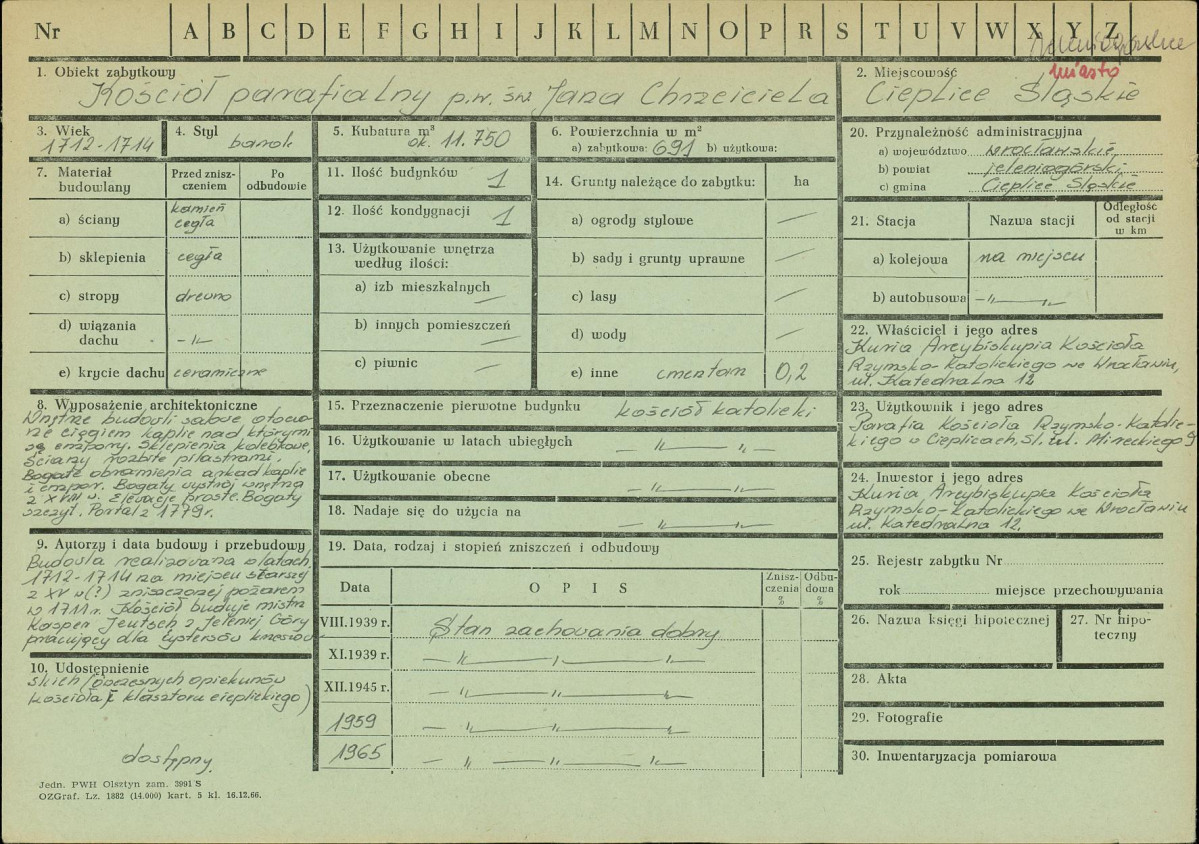 Nr A B C D E F G H I J K L M N O P R S T U V W X Y Z
miasto
1. Obiekt zabytkowy
Kościół parafialny p.w. św. Jana Chrzciciela
2. Miejscowość
Cieplice Śląskie
3. Wiek
1712-1714
4. Styl
barok
5. Kubatura m³
ok. 11.750
6. Powierzchnia w m²
a) zabytkowa: 691 b) użytkowa:
7. Materiał budowlany
Przed zniszczeniem
Po odbudowie
a) ściany
kamień
cegła
b) sklepienia cegła
c) stropy drewno
d) wiązania dachu -〃-
e) krycie dachu ceramiczne
8. Wyposażenie architektoniczne
Wnętrze budowli salowe otoczo-
ne ciągiem kaplic nad którymi
są empory. Sklepienia kolebkowe,
Ściany rozbite pilastrami.
Bogate obramienia arkad kaplic
i empor. Bogaty wystrój wnętrza
z XVIII w. Elewacje proste. Bogaty
szczyt. Portal z 1779 r.
9. Autorzy i data budowy i przebudowy
Budowla realizowana w latach
1712-1714 na miejscu starszej
z XV w (?) zniszczonej pożarem
w 1711 r. Kościół buduje mistrz
Kasper Jentsch z Jeleniej Góry
pracujący dla cystersów krzeszow-
10. Udostępnienie
skich (ówczesnych opiekunów
kościoła i klasztoru cieplickiego)
dostępny
Jedn. PWH Olsztyn zam. 3991 S
OZGraf. Lz. 1882 (14.000) kart. 5 kl. 16.12.66.
11. Ilość budynków 1
12. Ilość kondygnacji 1
13. Użytkowanie wnętrza
według ilości:
a) izb mieszkalnych —
b) innych pomieszczeń —
c) piwnic —
14. Grunty należące do zabytku: ha
a) ogrody stylowe —
b) sady i grunty uprawne —
c) lasy —
d) wody —
e) inne cmentarz 0,2
15. Przeznaczenie pierwotne budynku kościół katolicki
16. Użytkowanie w latach ubiegłych — 〃 —
17. Użytkowanie obecne — 〃 —
18. Nadaje się do użycia na — 〃 —
19. Data, rodzaj i stopień zniszczeń i odbudowy
Data
O P I S
Zniszczenia %
Odbudowa %
VIII.1939 r. Stan zachowania dobry
XI.1939 r. — 〃 — 〃 — 〃 —
XII.1945 r. — 〃 — 〃 — 〃 —
1959 — 〃 — 〃 — 〃 —
1965 — 〃 — 〃 — 〃 —
20. Przynależność administracyjna
a) województwo wrocławskie
b) powiat jeleniogórski
c) gmina Cieplice Śląskie
21. Stacja
Nazwa stacji
Odległość od stacji w km
a) kolejowa na miejscu
b) autobusowa -〃-
22. Właściciel i jego adres
Kuria Arcybiskupia Kościoła
Rzymsko-Katolickiego we Wrocławiu,
ul. Katedralna 12
23. Użytkownik i jego adres
Parafia Kościoła Rzymsko-Katolic-
kiego w Cieplicach Śl. ul. Mireckiego 9
24. Inwestor i jego adres
Kuria Arcybiskupia Kościoła
Rzymsko-Katolickiego we Wrocławiu
ul. Katedralna 12.
25. Rejestr zabytku Nr
rok miejsce przechowywania
26. Nazwa księgi hipotecznej
27. Nr hipoteczny
28. Akta
29. Fotografie
30. Inwentaryzacja pomiarowa